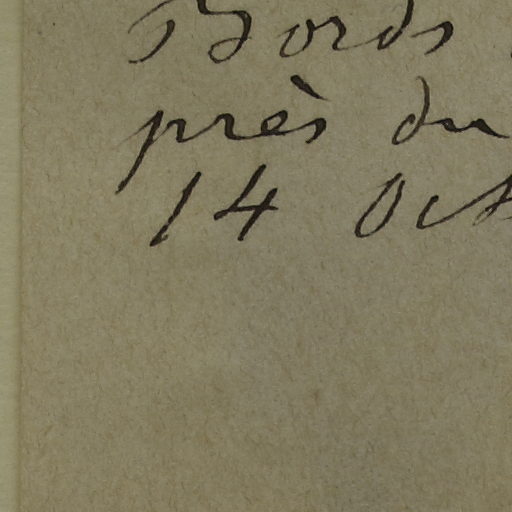 Bords
près du
14 Oct